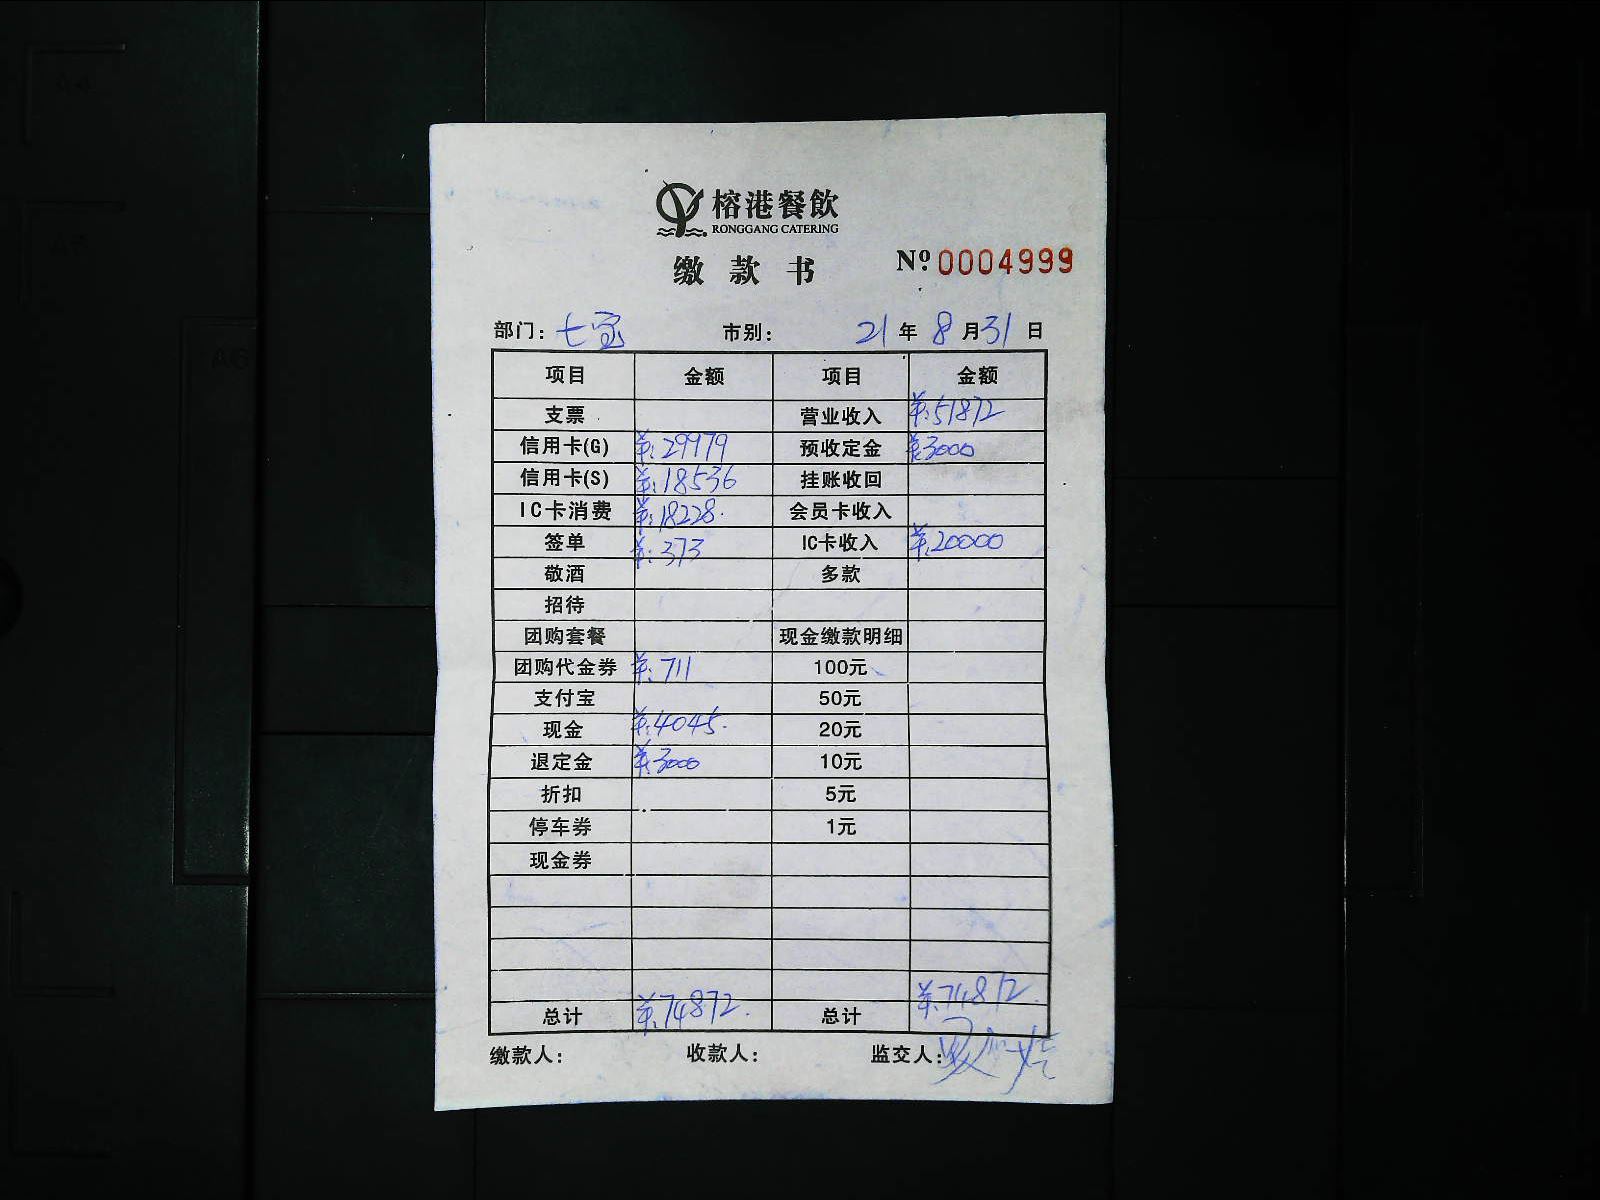 榕港餐飲
RONGGANG CATERING
缴款书 Nº: 0004999
部门: 七宝 市别: 21 年 8 月 31 日
项目 金额 项目 金额
支票 营业收入 ¥:51872
信用卡(G) ¥:29979 预收定金 ¥:3000
信用卡(S) ¥:18536 挂账收回
IC卡消费 ¥:18228. 会员卡收入
签单 ¥:373 IC卡收入 ¥:20000
敬酒 多款
招待
团购套餐 现金缴款明细
团购代金券 ¥:711 100元
支付宝 50元
现金 ¥:4045. 20元
退定金 ¥:3000 10元
折扣 5元
停车券 1元
现金券
总计 ¥:74872. 总计 ¥:74872.
缴款人: 收款人: 监交人: